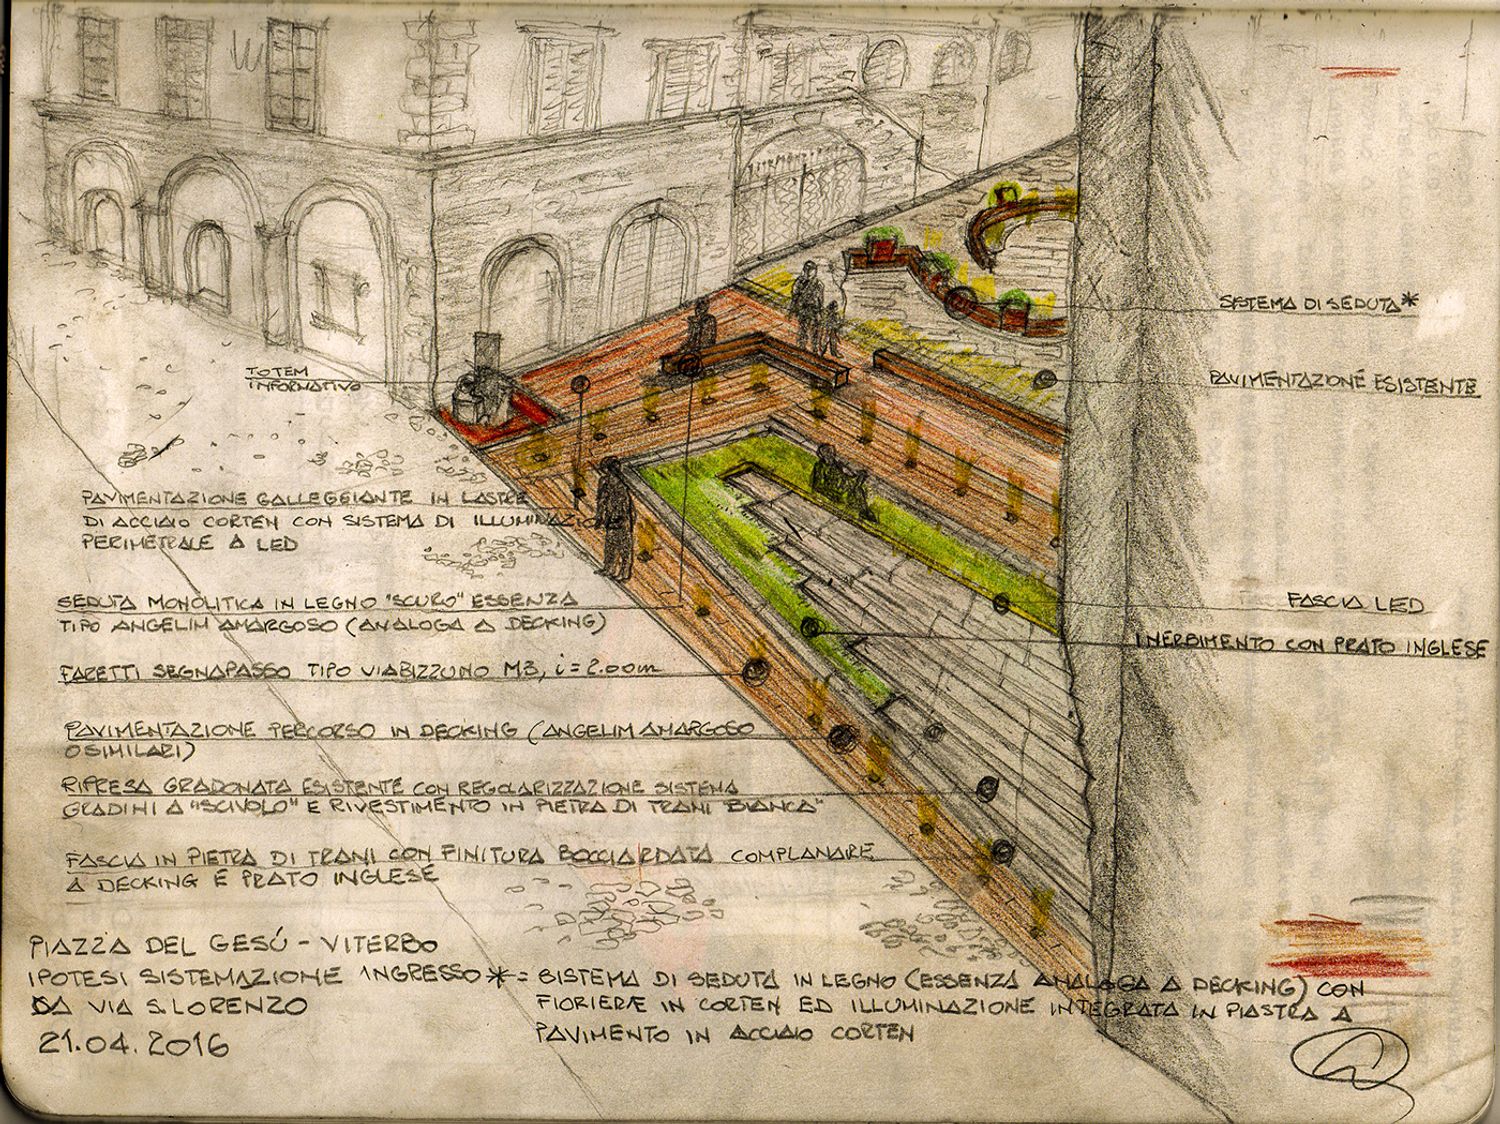 SISTEMA DI SEDUTA*
TOTEM
INFORMATIVO
PAVIMENTAZIONE ESISTENTE
PAVIMENTAZIONE GALLEGGIANTE IN LASTRE
DI ACCIAIO CORTEN CON SISTEMA DI ILLUMINAZIONE
PERIMETRALE A LED
SEDUTA MONOLITICA IN LEGNO "SCURO" ESSENZA
TIPO ANGELIM AMARGOSO (ANALOGA A DECKING)
FASCIA LED
INERBIMENTO CON PRATO INGLESE
FARETTI SEGNAPASSO TIPO VIABIZZUNO M3, i = 2.00m
PAVIMENTAZIONE PERCORSO IN DECKING (ANGELIM AMARGOSO
O SIMILARI)
RIPRESA GRADONATA ESISTENTE CON REGOLARIZZAZIONE SISTEMA
GRADINI A "SCIVOLO" E RIVESTIMENTO IN PIETRA DI TRANI "BIANCA"
FASCIA IN PIETRA DI TRANI CON FINITURA BOCCIARDATA COMPLANARE
A DECKING E PRATO INGLESE
PIAZZA DEL GESÚ - VITERBO
IPOTESI SISTEMAZIONE INGRESSO
DA VIA S. LORENZO
21.04.2016
* = SISTEMA DI SEDUTA IN LEGNO (ESSENZA ANALOGA A DECKING) CON
FIORIERE IN CORTEN ED ILLUMINAZIONE INTEGRATA IN PIASTRA A
PAVIMENTO IN ACCIAIO CORTEN